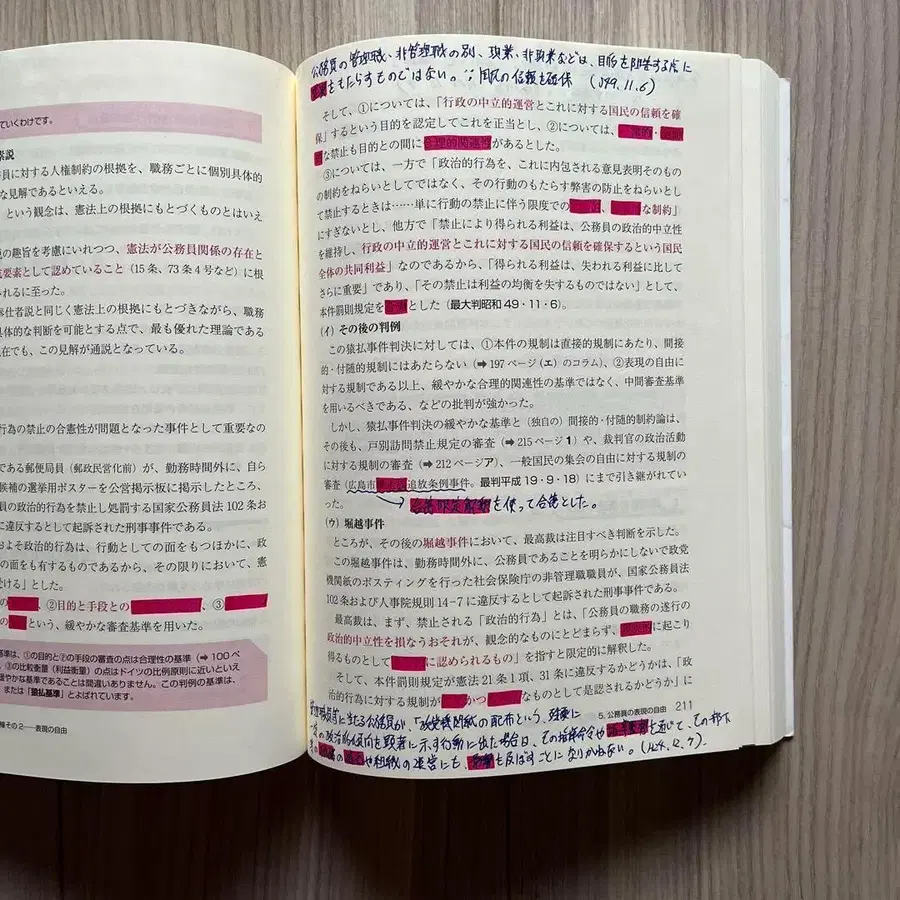 ていくわけです。
素説
員に対する人権制約の根拠を、職務ごとに個別具体的
な見解であるといえる。
という観念は、憲法上の根拠にもとづくものとはいえ
説の趣旨を考慮にいれつつ、憲法が公務員関係の存在と
成要素として認めていること（15条、73条4号など）に根
られるに至った。
奉仕者説と同じく憲法上の根拠にもとづきながら、職務
具体的な判断を可能とする点で、最も優れた理論である
在でも、この見解が通説となっている。
行為の禁止の合憲性が問題となった事件として重要なの
である郵便局員（郵政民営化前）が、勤務時間外に、自ら
候補の選挙用ポスターを公営掲示板に掲示したところ、
員の政治的行為を禁止し処罰する国家公務員法102条お
に違反するとして起訴された刑事事件である。
およそ政治的行為は、行動としての面をもつほかに、政
の面をも有するものであるから、その限りにおいて、憲
受ける」とした。
の、②目的と手段との、③
のという、緩やかな審査基準を用いた。
基準は、①の目的と②の手段の審査の点は合理性の基準（➡100ペ
、③の比較衡量（利益衡量）の点はドイツの比例原則に近いといえ
緩やかな基準であることは間違いありません。この判例の基準は、
または「猿払基準」とよばれています。
権その2――表現の自由
公務員の管理職、非管理職の別、現業、非現業などは、目的を阻害する点に
をもたらすものではない。∵国民の信頼も確保（S49.11.6）
そして、①については、「行政の中立的運営とこれに対する国民の信頼を確
保」するという目的を認定してこれを正当とし、②については、
な禁止も目的との間に合理的関連性があるとした。
③については、一方で「政治的行為を、これに内包される意見表明そのもの
の制約をねらいとしてではなく、その行動のもたらす弊害の防止をねらいとし
て禁止するときは……単に行動の禁止に伴う限度での な制約」
にすぎないとし、他方で「禁止により得られる利益は、公務員の政治的中立性
を維持し、行政の中立的運営とこれに対する国民の信頼を確保するという国民
全体の共同利益」なのであるから、「得られる利益は、失われる利益に比して
さらに重要」であり、「その禁止は利益の均衡を失するものではない」として、
本件罰則規定を合憲とした（最大判昭和49・11・6）。
（イ）その後の判例
この猿払事件判決に対しては、①本件の規制は直接的規制にあたり、間接
的・付随的規制にはあたらない（➡197ページ（エ）のコラム）、②表現の自由に
対する規制である以上、緩やかな合理的関連性の基準ではなく、中間審査基準
を用いるべきである、などの批判が強かった。
しかし、猿払事件判決の緩やかな基準と（独自の）間接的・付随的制約論は、
その後も、戸別訪問禁止規定の審査（➡215ページ1）や、裁判官の政治活動
に対する規制の審査（➡212ページア）、一般国民の集会の自由に対する規制の
審査（広島市暴走族追放条例事件。最判平成19・9・18）にまで引き継がれてい
った。
→合憲限定解釈を使って合憲とした。
（ウ）堀越事件
ところが、その後の堀越事件において、最高裁は注目すべき判断を示した。
この堀越事件は、勤務時間外に、公務員であることを明らかにしないで政党
機関紙のポスティングを行った社会保険庁の非管理職職員が、国家公務員法
102条および人事院規則14-7に違反するとして起訴された刑事事件である。
最高裁は、まず、禁止される「政治的行為」とは、「公務員の職務の遂行の
政治的中立性を損なうおそれが、観念的なものにとどまらず、に起こり
得るものとしてに認められるもの」を指すと限定的に解釈した。
そして、本件罰則規定が憲法21条1項、31条に違反するかどうかは、「政
治的行為に対する規制がかつなものとして是認されるかどうか」に
5. 公務員の表現の自由 211
管理職員等に当たる公務員が、「政党機関紙の配布という、強度に
の政治的傾向を顕著に示す行動に出た場合は、その指揮命令や を通じて、その部下
や組織の運営にも、影響を及ぼすことになりかねない。（H24.12.7）